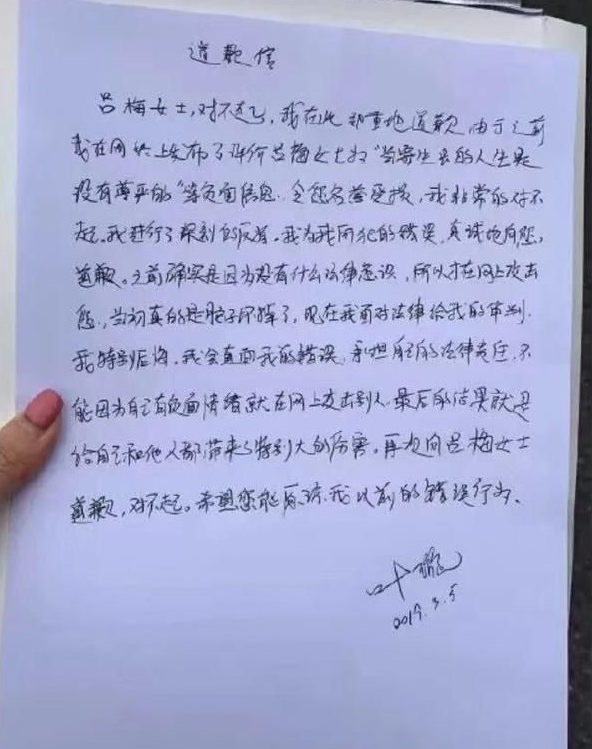 道歉信
吕梅女士，对不起，我在此郑重地道歉 由于之前
我在网络上发布了评价吕梅女士的"当寄生虫的人生是
没有尊严的"等负面信息，令您名誉受损，我非常的对不
起，我进行了深刻的反省。我为我所犯的错误，真诚地向您，
道歉。之前确实是因为没有什么法律意识，所以才在网上攻击
您，当初真的是脑子坏掉了，现在我面对法律给我的审判，
我特别后悔，我会直面我的错误，承担自己的法律责任，不
能因为自己有负面情绪就在网上攻击别人 最后的结果就是
给自己和他人都带来了特别大的伤害，再次向吕梅女士
道歉，对不起。希望您能原谅我以前的错误行为。
叶璇
2019.3.5